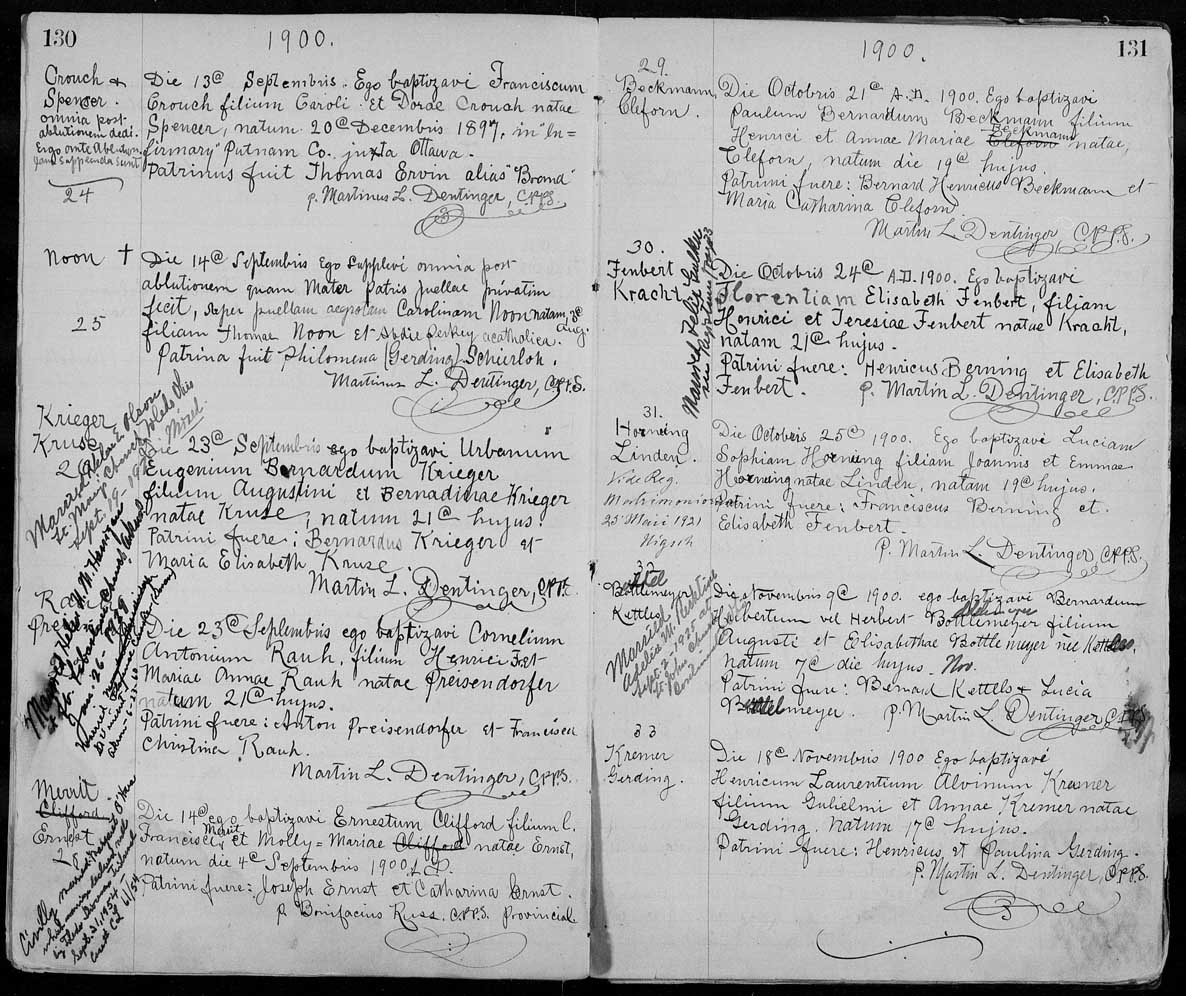 130
1900.
Crouch &
Spenser.
omnia post
ablutionem dedi.
Ergo ante Ablutionem
jam supplenda sunt
24
Die 13a Septembris. Ego baptizavi Franciscum
Crouch filium Caroli. Et Dorae Crouch natae
Spencer, natum 20a Decembris 1897. in "In=
firmary" Putnam Co. juxta Ottawa.
Patrinus fuit Thomas Ervin alias "Bromd"
p. Martinus L. Dentinger, C.PP.S.
Noon †
25
Die 14a Septembris Ego Supplevi omnia post
ablutionem quam Mater Patris puellae privatim
fecit, super puellam aegrotam Carolinam Noon natam, 3a
Aug.
filiam Thomae Noon et Abdie Perkey acatholica.
Patrina fuit Philomena (Gerding) Schierloh.
Martinus L. Dentinger, C.PP.S.
Krieger
Kruse
Married
St. Mary's Church Toledo Ohio
Sept. 19
Die 23a Septembris ego baptizavi Urbanum
Eugenium Bernardum Krieger
filium Augustini et Bernadinae Krieger
natae Kruse, natum 21a hujus
Patrini fuere: Bernardus Krieger et
Maria Elisabeth Kruse.
Martin L. Dentinger, C.PP.S.
Married Helen M.
Jan. 26 - 1929
Die 23a Septembris ego baptizavi Cornelium
Antonium Rauh, filium Henrici F. et
Mariae Annae Rauh natae Preisendorfer
natum 21a hujus.
Patrini fuere: Anton Preisendorfer et Francisca
Christina Rauh.
Martin L. Dentinger, C.PP.S.
Merritt
Clifford
Ernest
Civilly married Margaret O'Hara
Sept. 21, 1954
Die 14a ego baptizavi Ernestum Clifford filium C.
Francisci Merrit et Molly=Mariae Clifford natae Ernst,
natum die 4a Septembris 1900 A.D.
Patrini fuere: Joseph Ernst et Catharina Ernst.
p. Bonifacius Russ. C.PP.S. Provincial
131
1900.
29.
Beckmann
Cleforn.
Die Octobris 21a A.D. 1900. Ego baptizavi
Paulum Bernardum Beckmann filium
Henrici et Annae Mariae Cleforn Beckmann natae,
Cleforn, natum die 19a hujus.
Patrini fuere: Bernard Henricus Beckmann et
Maria Catharina Cleforn.
Martin L. Dentinger, C.PP.S.
30.
Fenbert
Kracht
Married Felix
Die Octobris 24a A.D. 1900. Ego baptizavi
Florentiam Elisabeth Fenbert, filiam
Henrici et Teresiae Fenbert natae Kracht,
natam 21a hujus.
Patrini fuere: Henricus Berning et Elisabeth
Fenbert. p. Martin L. Dentinger, C.PP.S.
31.
Horning
Linden.
Vide Reg.
Matrimoniorum
25 Maii 1921
Die Octobris 25a 1900. Ego baptizavi Luciam
Sophiam Horning filiam Joannis et Emmae
Horning natae Linden, natam 19a hujus.
Patrini fuere: Franciscus Berning et
Elisabeth Fenbert.
P. Martin L. Dentinger C.PP.S.
32
Bottlemeyer
Kettles
Married
Sept. 2-1925 at
St. John Church
Die Novembris 9a 1900. ego baptizavi Bernardum
Hubertum vel Herbert Bottlemeyer filium
Augusti et Elisabethae Bottlemeyer née Kettles,
natum 7a die hujus. Nov.
Patrini fuere: Bernard Kettels & Lucia
Bottelmeyer. p. Martin L. Dentinger C.PP.S.
33
Kremer
Gerding.
Die 18a Novembris 1900 Ego baptizavi
Henricum Laurentium Alvinum Kremer
filium Gulielmi et Annae Kremer natae
Gerding. natum 17a hujus.
Patrini fuere: Henricus et Paulina Gerding.
p. Martin L. Dentinger, C.PP.S.